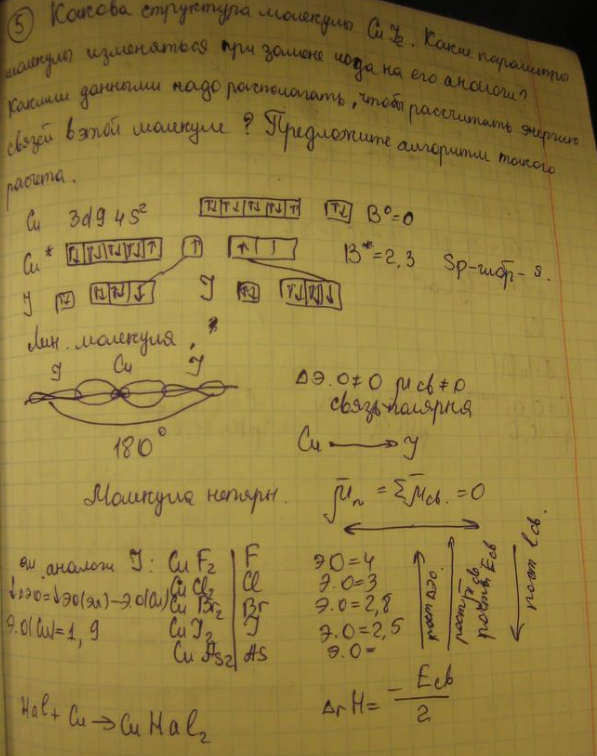 ⑤ Какова структура молекулы CuI₂. Какие параметры
молекулы изменяться при замене иода на его аналоги?
Какими данными надо располагать, чтобы рассчитать энергию
связей в этой молекуле? Предложите алгоритм такого
расчета.
Cu 3d9 4s² ↑↓ ↑↓ ↑↓ ↑↓ ↑ ↑↓ B⁰=0
Cu* ↑↓ ↑↓ ↑↓ ↑↓ ↑ ↑ ↑ B*=2,3 Sp-гибр-я.
J J
Лин. молекула,
J Cu J
180°
ΔЭ.О≠0 μсв≠0
связь полярня
Cu → J
Молекула неполярн. μ̄м = Σμ̄св. = 0
аналоги J: CuF₂ F ЭО=4
CuCl₂ Cl Э.О=3
ΔЭО=ЭО(эл)-Э.О(Cu) CuBr₂ Br Э.О=2,8
Э.О(Cu)=1,9 CuJ₂ J Э.О=2,5
CuAs₂ As Э.О=
рост ΔЭО. рост μ̄св рочты, Eсв рост lсв.
Hal + Cu → CuHal₂ ΔrH= -Eсв/2